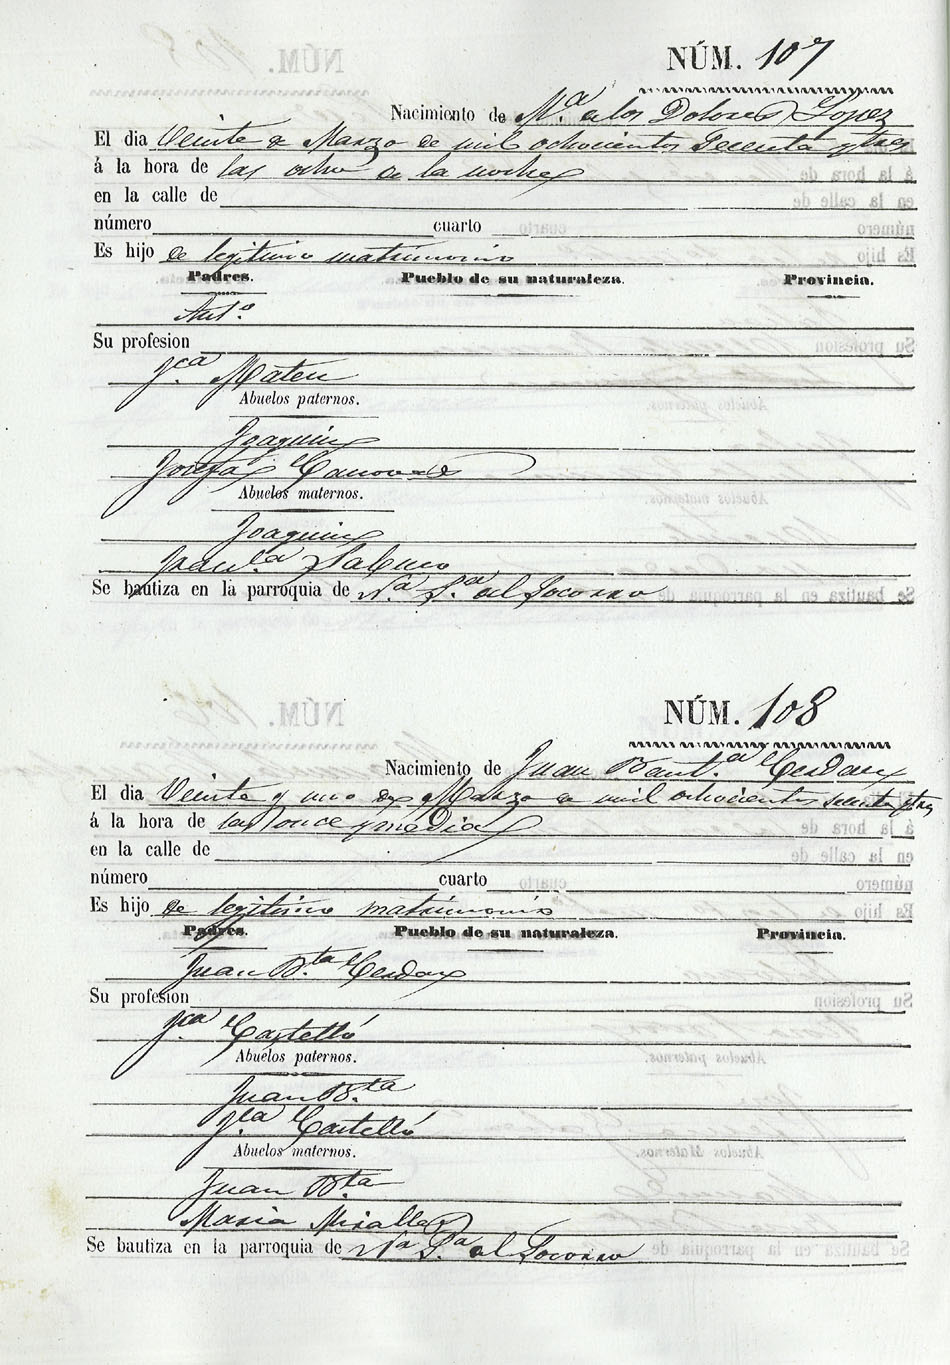 NÚM. 107
Nacimiento de M.ª de los Dolores Lopez
El dia Veinte de Marzo de mil ochocientos Secenta y tres
á la hora de las ocho de la noche
en la calle de
número cuarto
Es hijo de legitimo matrimonio
Padres. Pueblo de su naturaleza. Provincia.
Ant.º
Su profesion
J.ca Mateu
Abuelos paternos.
Joaquin
Josefa Canovas
Abuelos maternos.
Joaquin
Fran.ca
Se bautiza en la parroquia de N.ª S.ª del Socorro
NÚM. 108
Nacimiento de Juan Baut.ª Cerdan
El dia Veinte y uno de Marzo de mil ochocientos secenta y tres
á la hora de las once y media
en la calle de
número cuarto
Es hijo de legitimo matrimonio
Padres. Pueblo de su naturaleza. Provincia.
Juan B.ta Cerdan
Su profesion
J.ca Castelló
Abuelos paternos.
Juan B.ta
J.ca Castelló
Abuelos maternos.
Juan B.ta
Maria Miralles
Se bautiza en la parroquia de N.ª S.ª del Socorro